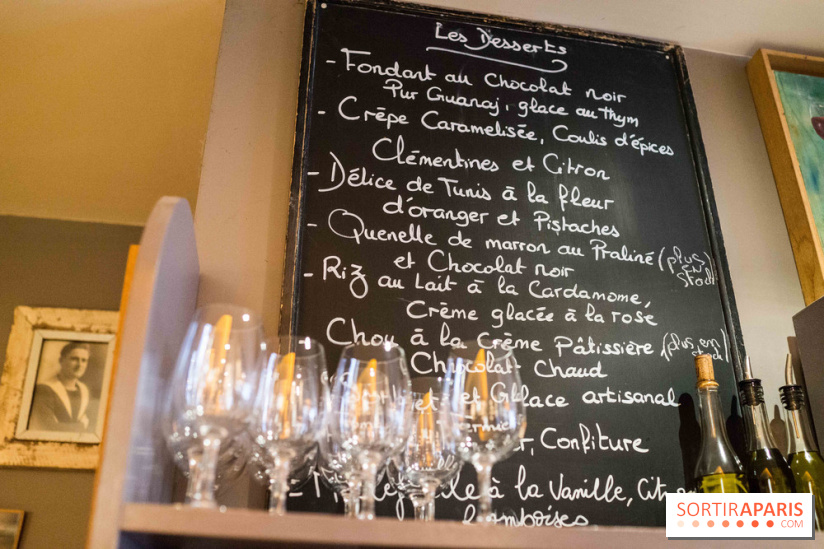 Les Desserts
- Fondant au Chocolat noir
Pur Guanaj, glace au thym
- Crêpe Caramelisée, Coulis d'épices
Clémentines et Citron
- Délice de Tunis à la fleur
d'oranger et Pistaches
- Quenelle de marron au Praliné (plus en stock)
et Chocolat noir
- Riz au Lait à la Cardamome,
Crème glacée à la rose
Chou à la Crème Pâtissière (plus en stock)
Chocolat Chaud
et Glace artisanal
, Confiture
à la Vanille,
SORTIRAPARIS
.COM